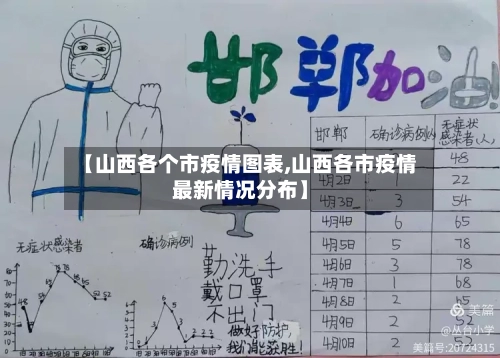 邯郸加油!
【山西各个市疫情图表,山西各市疫情
最新情况分布】
邯郸 确诊病例 无症状
感染者(人)
48
4月2日 1 22
4月3日 3 54
4月4日 6 65
4月5日 5 78
4月6日 3 78
4月7日 1 68
4月8日 2 65
4月9日 2
4月10日 2 52
无症状感染者
确诊病例
勤洗手
戴口罩
不出门
做好防护,
我们能获胜!
美篇
@丛台小学
美篇号:20724315